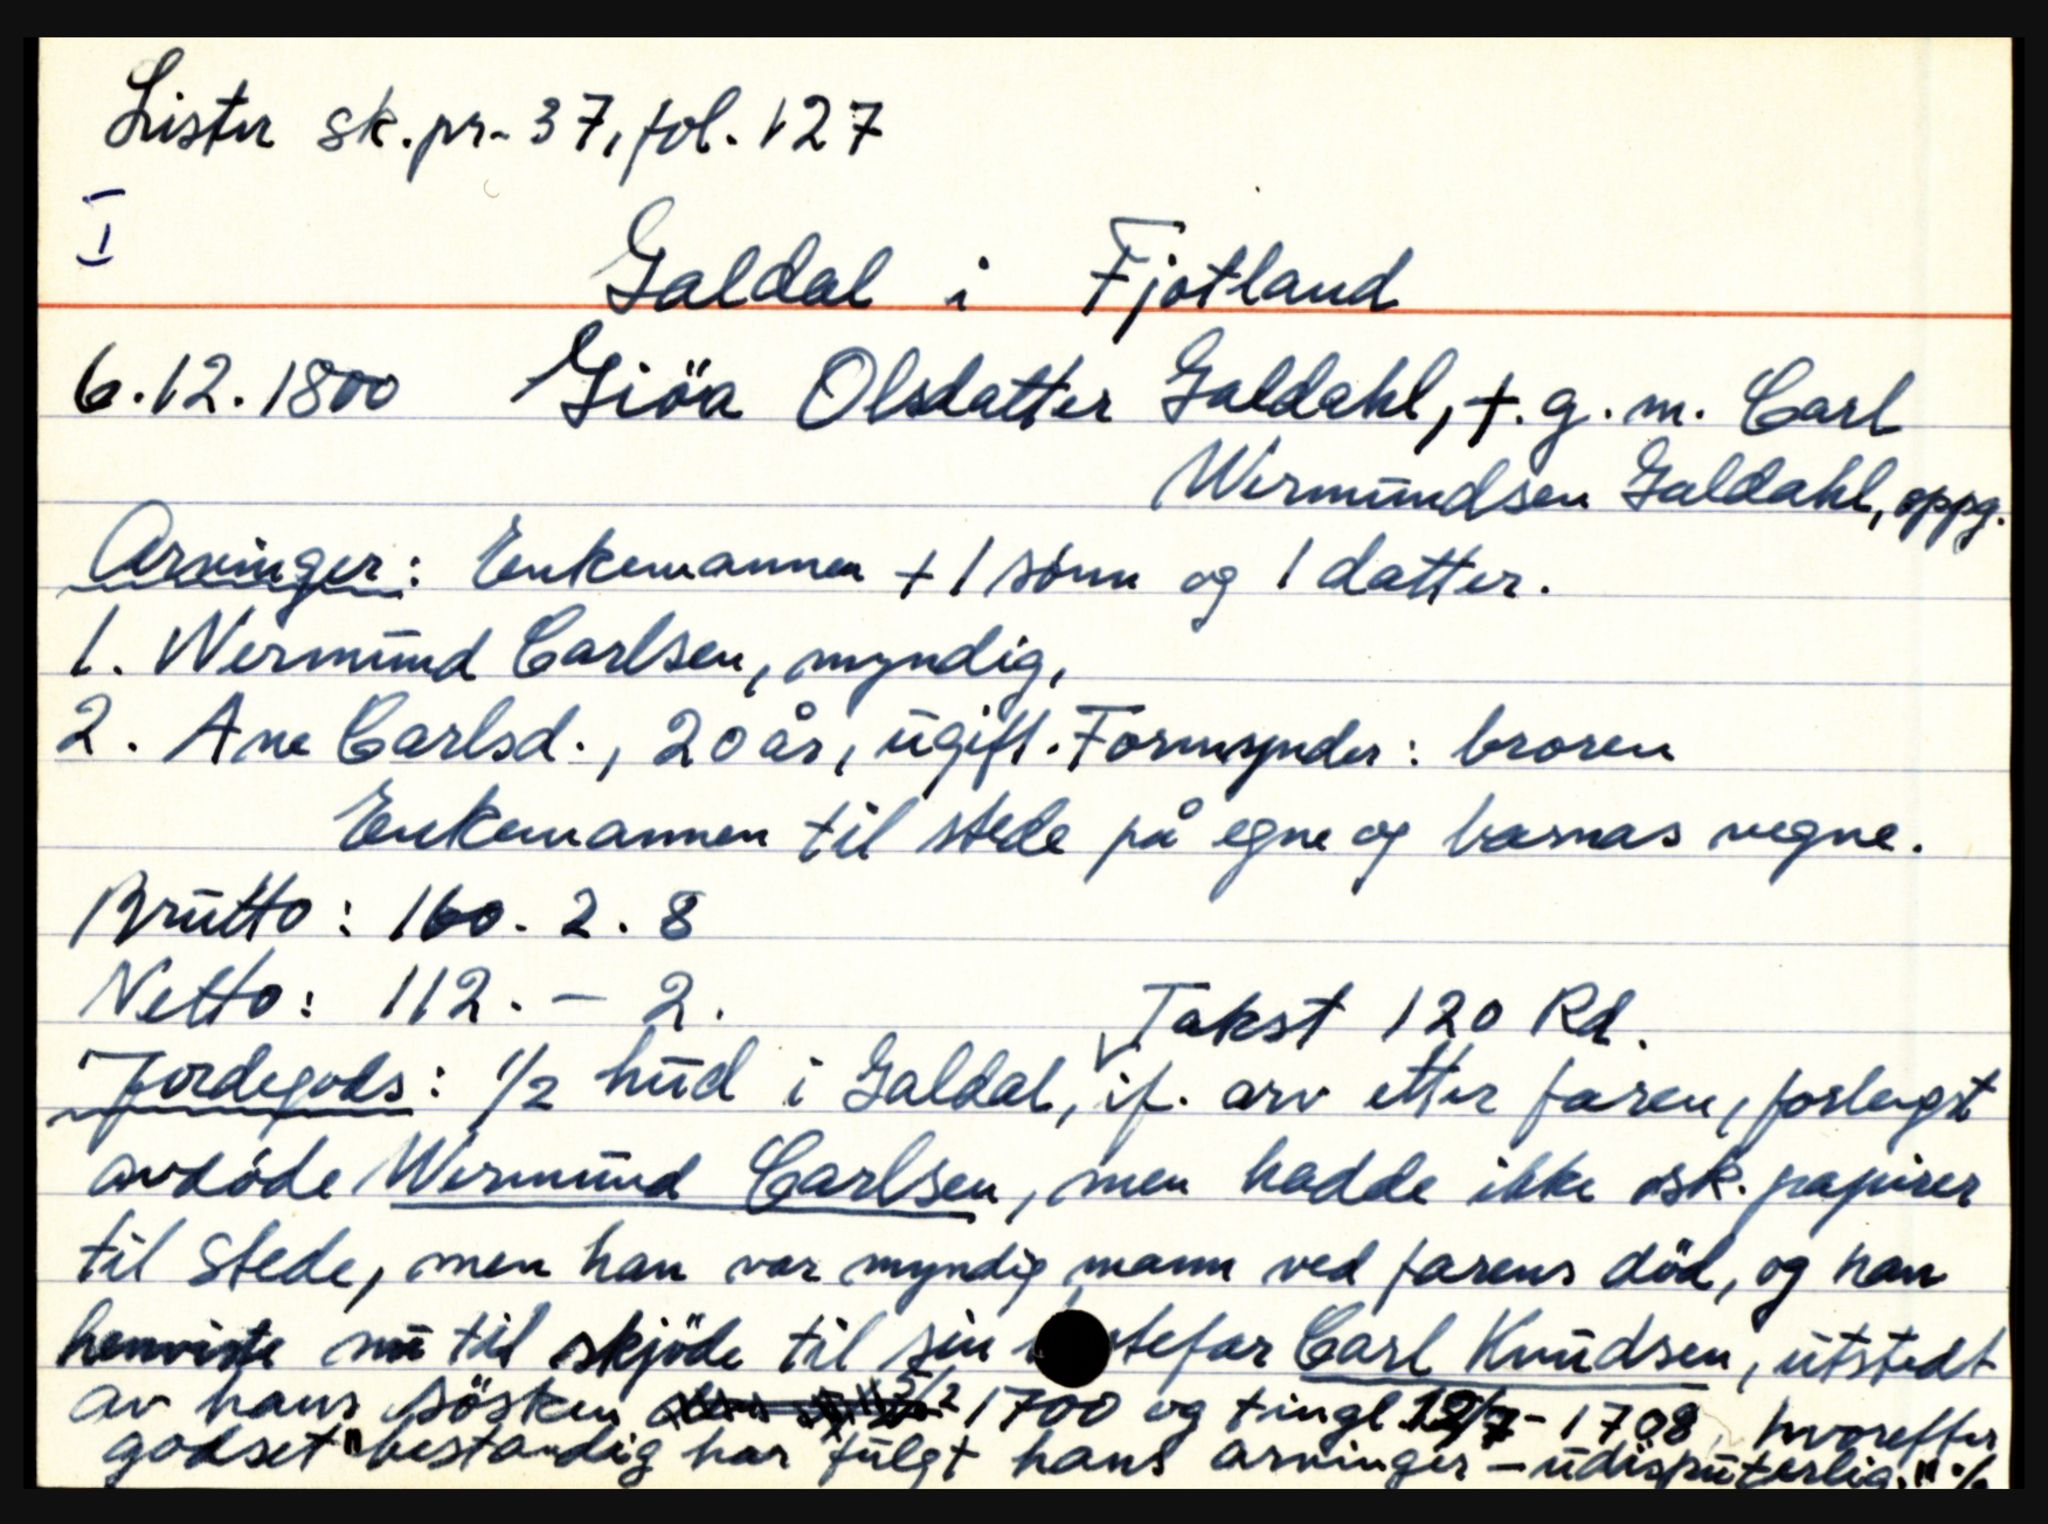 Lister sk.pr. 37, fol. 127
I
Galdal i Fjotland
6.12.1800 Giöa Olsdatter Galdahl, †. g. m. Carl
Wermundsen Galdahl, oppg.
Arvinger: Enkemannen + 1 sønn og 1 datter.
1. Wermund Carlsen, myndig,
2. Ane Carlsd., 20 år, ugift. Formynder: broren
Enkemannen til stede på egne og barnas vegne.
Brutto: 160. 2. 8
Netto: 112. - 2.
Takst 120 Rd.
Jordegods: 1/2 hud i Galdal, if. arv etter faren, forlengst
avdöde Wermund Carlsen, men hadde ikke sk. papirer
til stede, men han var myndig mann ved farens död, og han
henviste nu til skjöde til sin stefar Carl Knudsen, utstedt
av hans søsken 1700 og tingl. 1708, hvorefter
godset "bestandig har fulgt hans arvinger - udisputerlig." ./.